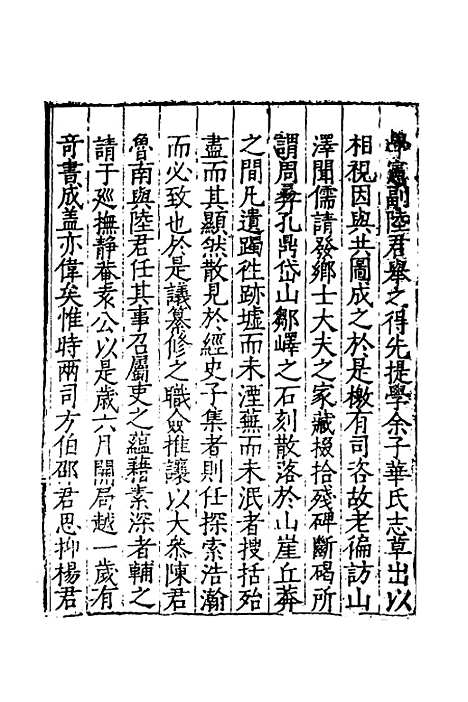 憲副陸君舉之得先提學余子華氏志草出以
相視因與共圖成之於是檄有司咨故老徧訪山
澤聞儒請發鄉士大夫之家藏掇拾殘碑斷碣所
謂周彝孔鼎岱山鄒嶧之石刻散落於山崖丘莽
之間凡遺躅徃跡墟而未湮蕪而未泯者搜括殆
盡而其顯然散見於經史子集者則任探索浩瀚
而必致也於是議纂修之職僉推讓以大叅陳君
魯南與陸君任其事召屬吏之蘊藉素深者輔之
請于廵撫靜菴袁公以是歲六月開局越一歲有
竒書成盖亦偉矣惟時兩司方伯邵君思抑楊君